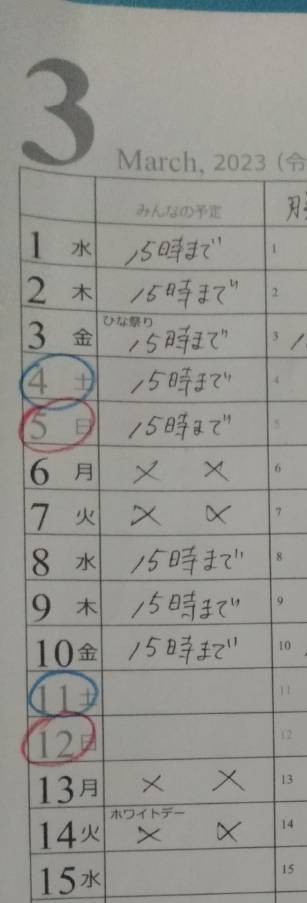 3
March, 2023 (令
みんなの予定
1 水 15時まで 1
2 木 15時まで 2
ひな祭り
3 金 15時まで 3
4 土 15時まで 4
5 日 15時まで 5
6 月 × × 6
7 火 × × 7
8 水 15時まで 8
9 木 15時まで 9
10 金 15時まで 10
11 土 11
12 日 12
13 月 × × 13
ホワイトデー
14 火 × × 14
15 水 15